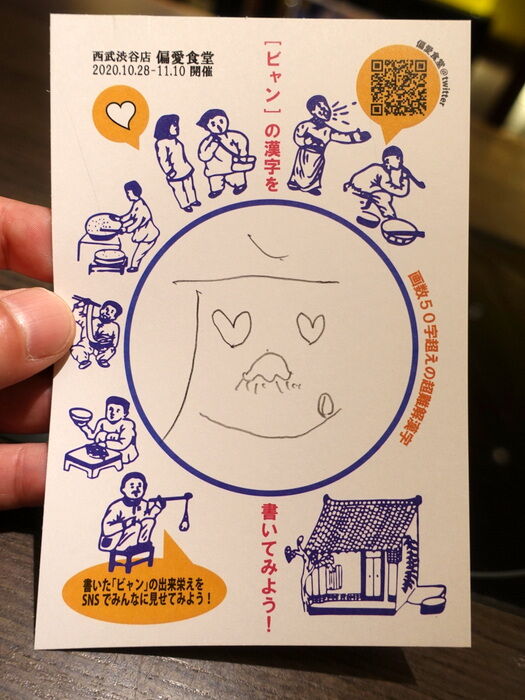 西武渋谷店 偏愛食堂
2020.10.28-11.10 開催
[ビャン]の漢字を
偏愛食堂@twitter
画数50字超えの超難解漢字
書いてみよう！
書いた「ビャン」の出来栄えを
SNSでみんなに見せてみよう！